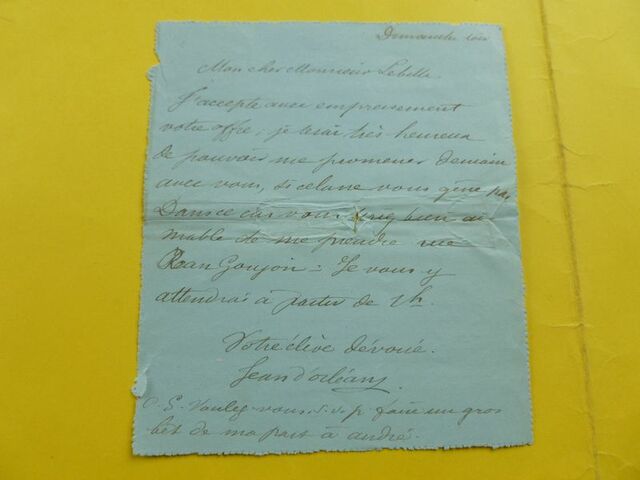 Dimanche soir
Mon cher Monsieur Lebelle
J'accepte avec empressement
votre offre, je serai très heureux
de pouvoir me promener demain
avec vous, si cela ne vous gêne pas
Dans ce cas vous bien ai-
mable de me prendre rue
Jean Goujon = Je vous y
attendrai à partir de 1h.
Votre élève dévoué.
Jean d'orléans
P. S. Voulez-vous s. v. p. faire un gros
bet de ma part à andré.